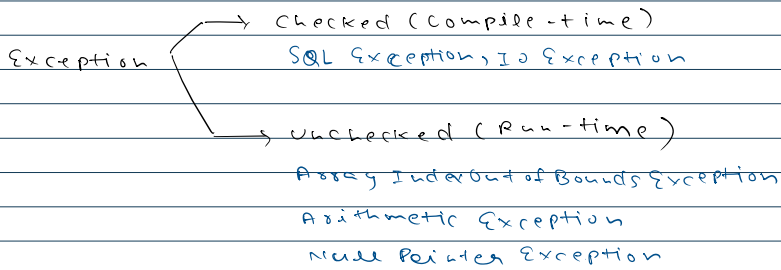 Checked (Compile-time)
Exception
SQL Exception, IO Exception
Unchecked (Run-time)
Array IndexOut of Bounds Exception
Arithmetic Exception
Null Pointer Exception